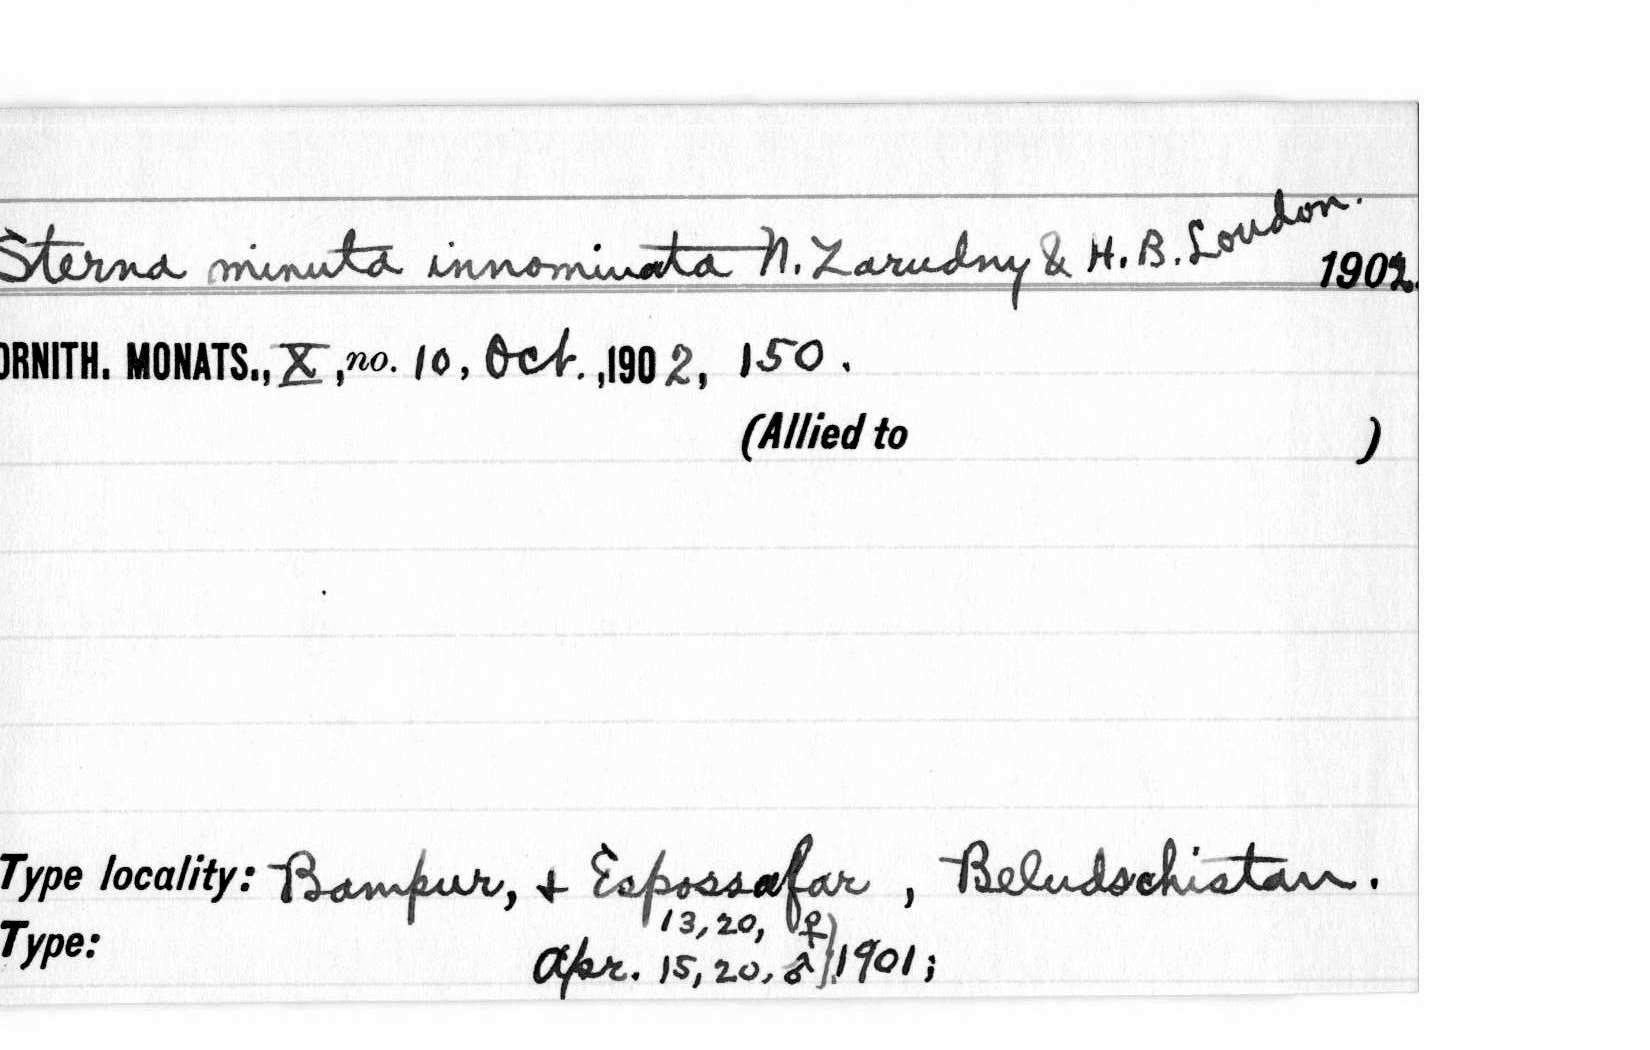 Sterna minuta innominata N. Zarudny & H. B. Loudon.
1902.
ORNITH. MONATS., X, no. 10, Oct., 1902, 150.
(Allied to )
Type locality: Bampur, & Espossafar, Beludschistan.
13, 20, ♀
Type: Apr. 15, 20, ♂} 1901;